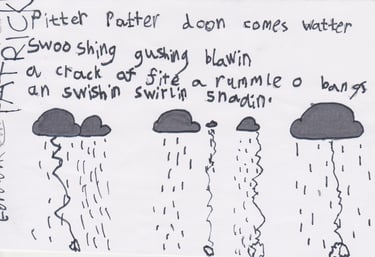 Pitter Patter doon comes watter
Swooshing gushing blawin
a crack of fire a rummle o bangs
an swishin swirlin snadin.
PATRICK